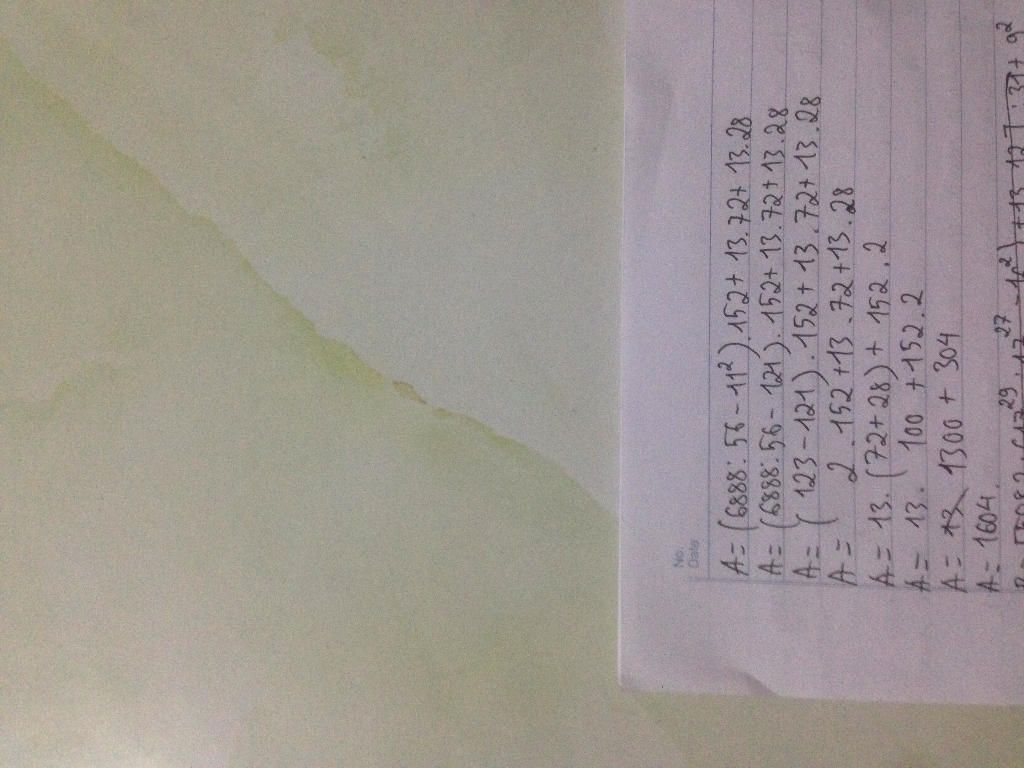 No.
Date
A = (6888 : 56 - 11²) . 152 + 13 . 72 + 13 . 28
A = (6888 : 56 - 121) . 152 + 13 . 72 + 13 . 28
A = ( 123 - 121) . 152 + 13 . 72 + 13 . 28
A = 2 . 152 + 13 . 72 + 13 . 28
A = 13 . (72 + 28) + 152 . 2
A = 13 . 100 + 152 . 2
A = 1300 + 304
A = 1604.